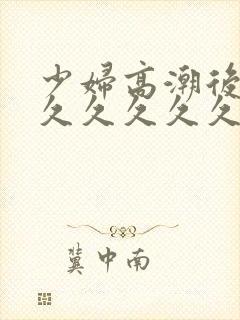 少婦高潮後
久久久久久
冀中南